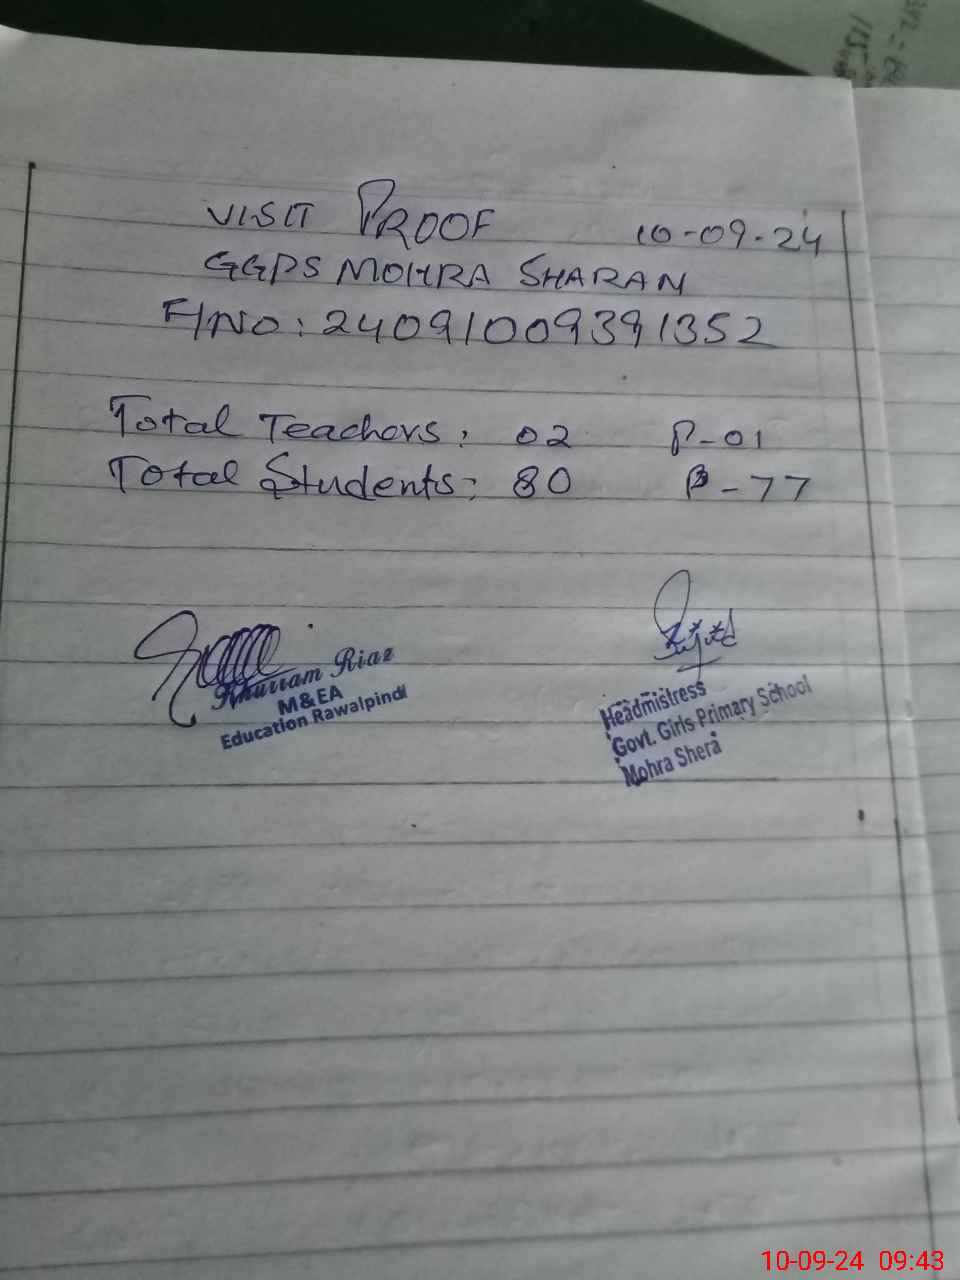 VISIT PROOF 10-09-24
GGPS MOHRA SHARAN
F/NO: 24091009391352
Total Teachers: 02 P-01
Total Students: 80 P-77
Khurram Riaz
M&EA
Education Rawalpindi
Headmistress
Govt. Girls Primary School
Mohra Shera
10-09-24 09:43